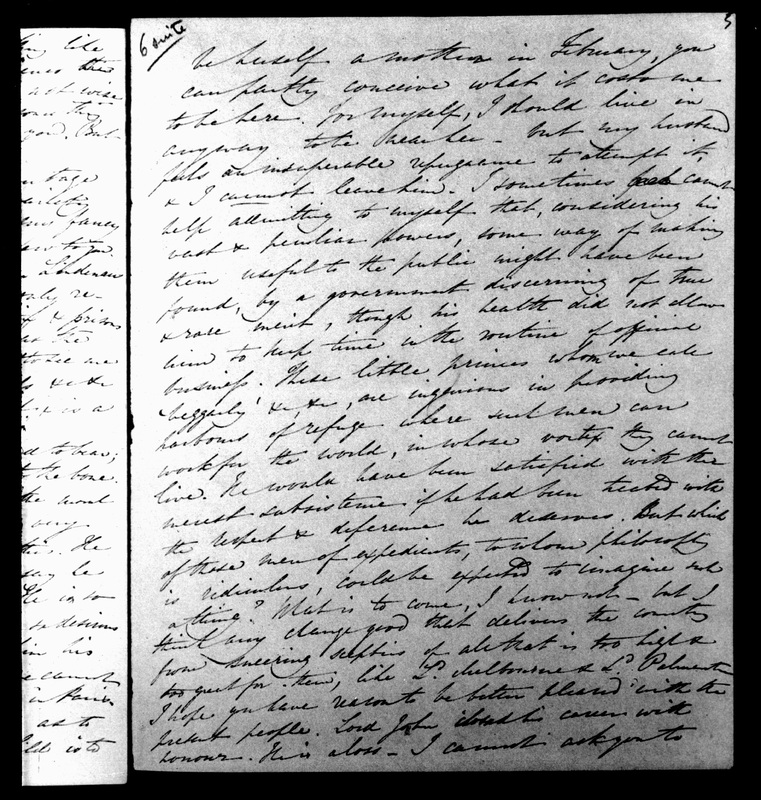 5
6 suite
be herself a mother in February, you
can partly conceive what it costs me
to be here. For myself, I should live in
any way to be near her - but my husband
feels an insuperable repugnance to attempt it,
& I cannot leave him. I sometimes cannot
help admitting to myself that, considering his
vast & peculiar powers, some way of making
them useful to the public might have been
found, by a government discerning of true
& rare merit, though his health did not allow
him to keep time in the routine of official
business. These little princes whom we call
'beggarly' &c, &c, are ingenious in providing
harbours of refuge where such men can
work for the world, in whose vortex they cannot
live. He would have been satisfied with the
merest subsistence if he had been treated with
the respect & deference he deserves. But which
of these men of expedients, to whom philosophy
is ridiculous, could be expected to imagine such
a thing? What is to come, I know not - but I
think any change good that delivers the country
from sneering sceptics of all that is too high &
too great for them, like Ld. Melbourne & Ld. Palmerston
I hope you have reason to be better pleased with the
present people. Lord John closed his career with
honour. He is a loss - I cannot ask you to
like
the
But
stage
fancy
Lindeman
only re-
& prisons
as the
those me
&c &c
is a
to bear;
the bone.
the moral
very
He
say be
He is so
so desirous
his
cannot
Paris
as to
is to